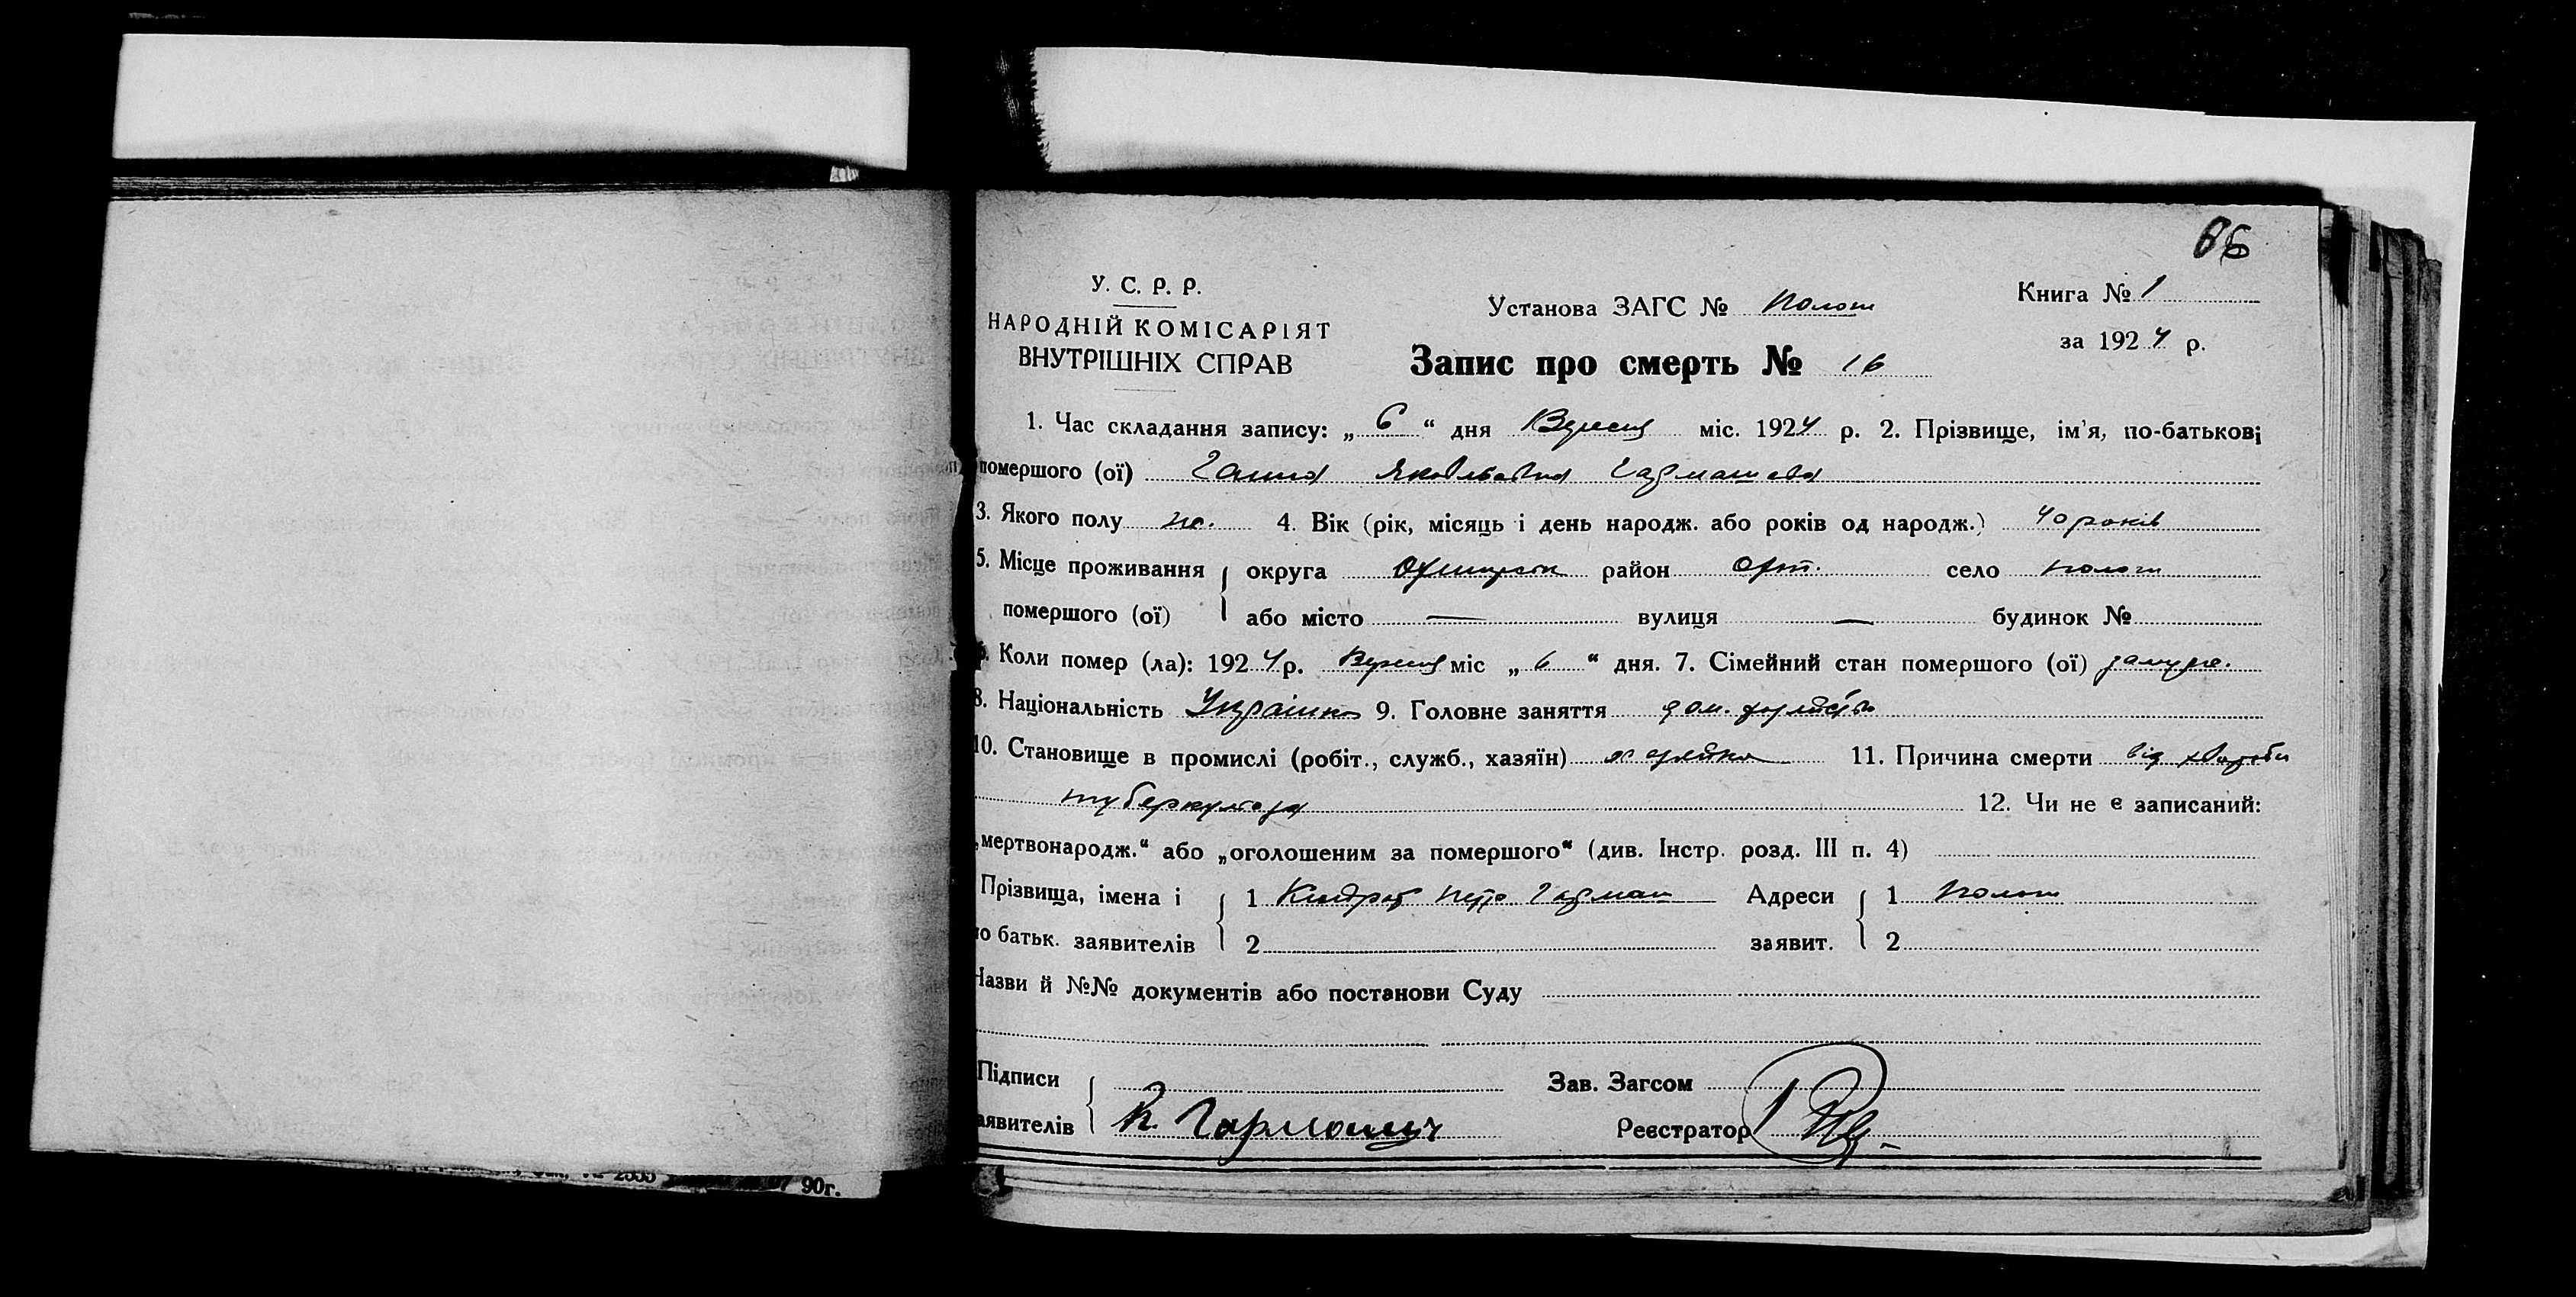 66
У. С. Р. Р.
НАРОДНІЙ КОМІСАРІЯТ
ВНУТРІШНІХ СПРАВ
Установа ЗАГС №
Книга № 1
за 1924 р.
Запис про смерть № 16
1. Час складання запису: „ 6 “ дня Вересня міс. 1924 р. 2. Прізвище, ім'я, по-батькові
помершого (ої) Ганна Яковльовна
3. Якого полу ж. 4. Вік (рік, місяць і день народж. або років од народж.) 40 років
5. Місце проживання округа район село
помершого (ої) або місто — вулиця — будинок №
Коли помер (ла): 1924 р. Вересня міс „ 6 “ дня. 7. Сімейний стан помершого (ої) замужн.
8. Національність Україинка 9. Головне заняття дом.
10. Становище в промислі (робіт., служб., хазяїн) хазяйка 11. Причина смерти від хвороби
туберкульоза 12. Чи не є записаний:
„мертвонародж.“ або „оголошеним за помершого“ (див. Інстр. розд. III п. 4)
Прізвища, імена і 1 Кіндрат Петр. Гарман Адреси 1
по батьк. заявителів 2 заявит. 2
Назви й №№ документів або постанови Суду
Підписи Зав. Загсом
заявителів К. Реєстратор
90г.